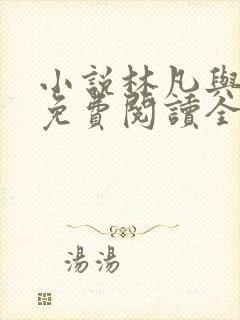 小說林凡與
免費閱讀全
湯湯